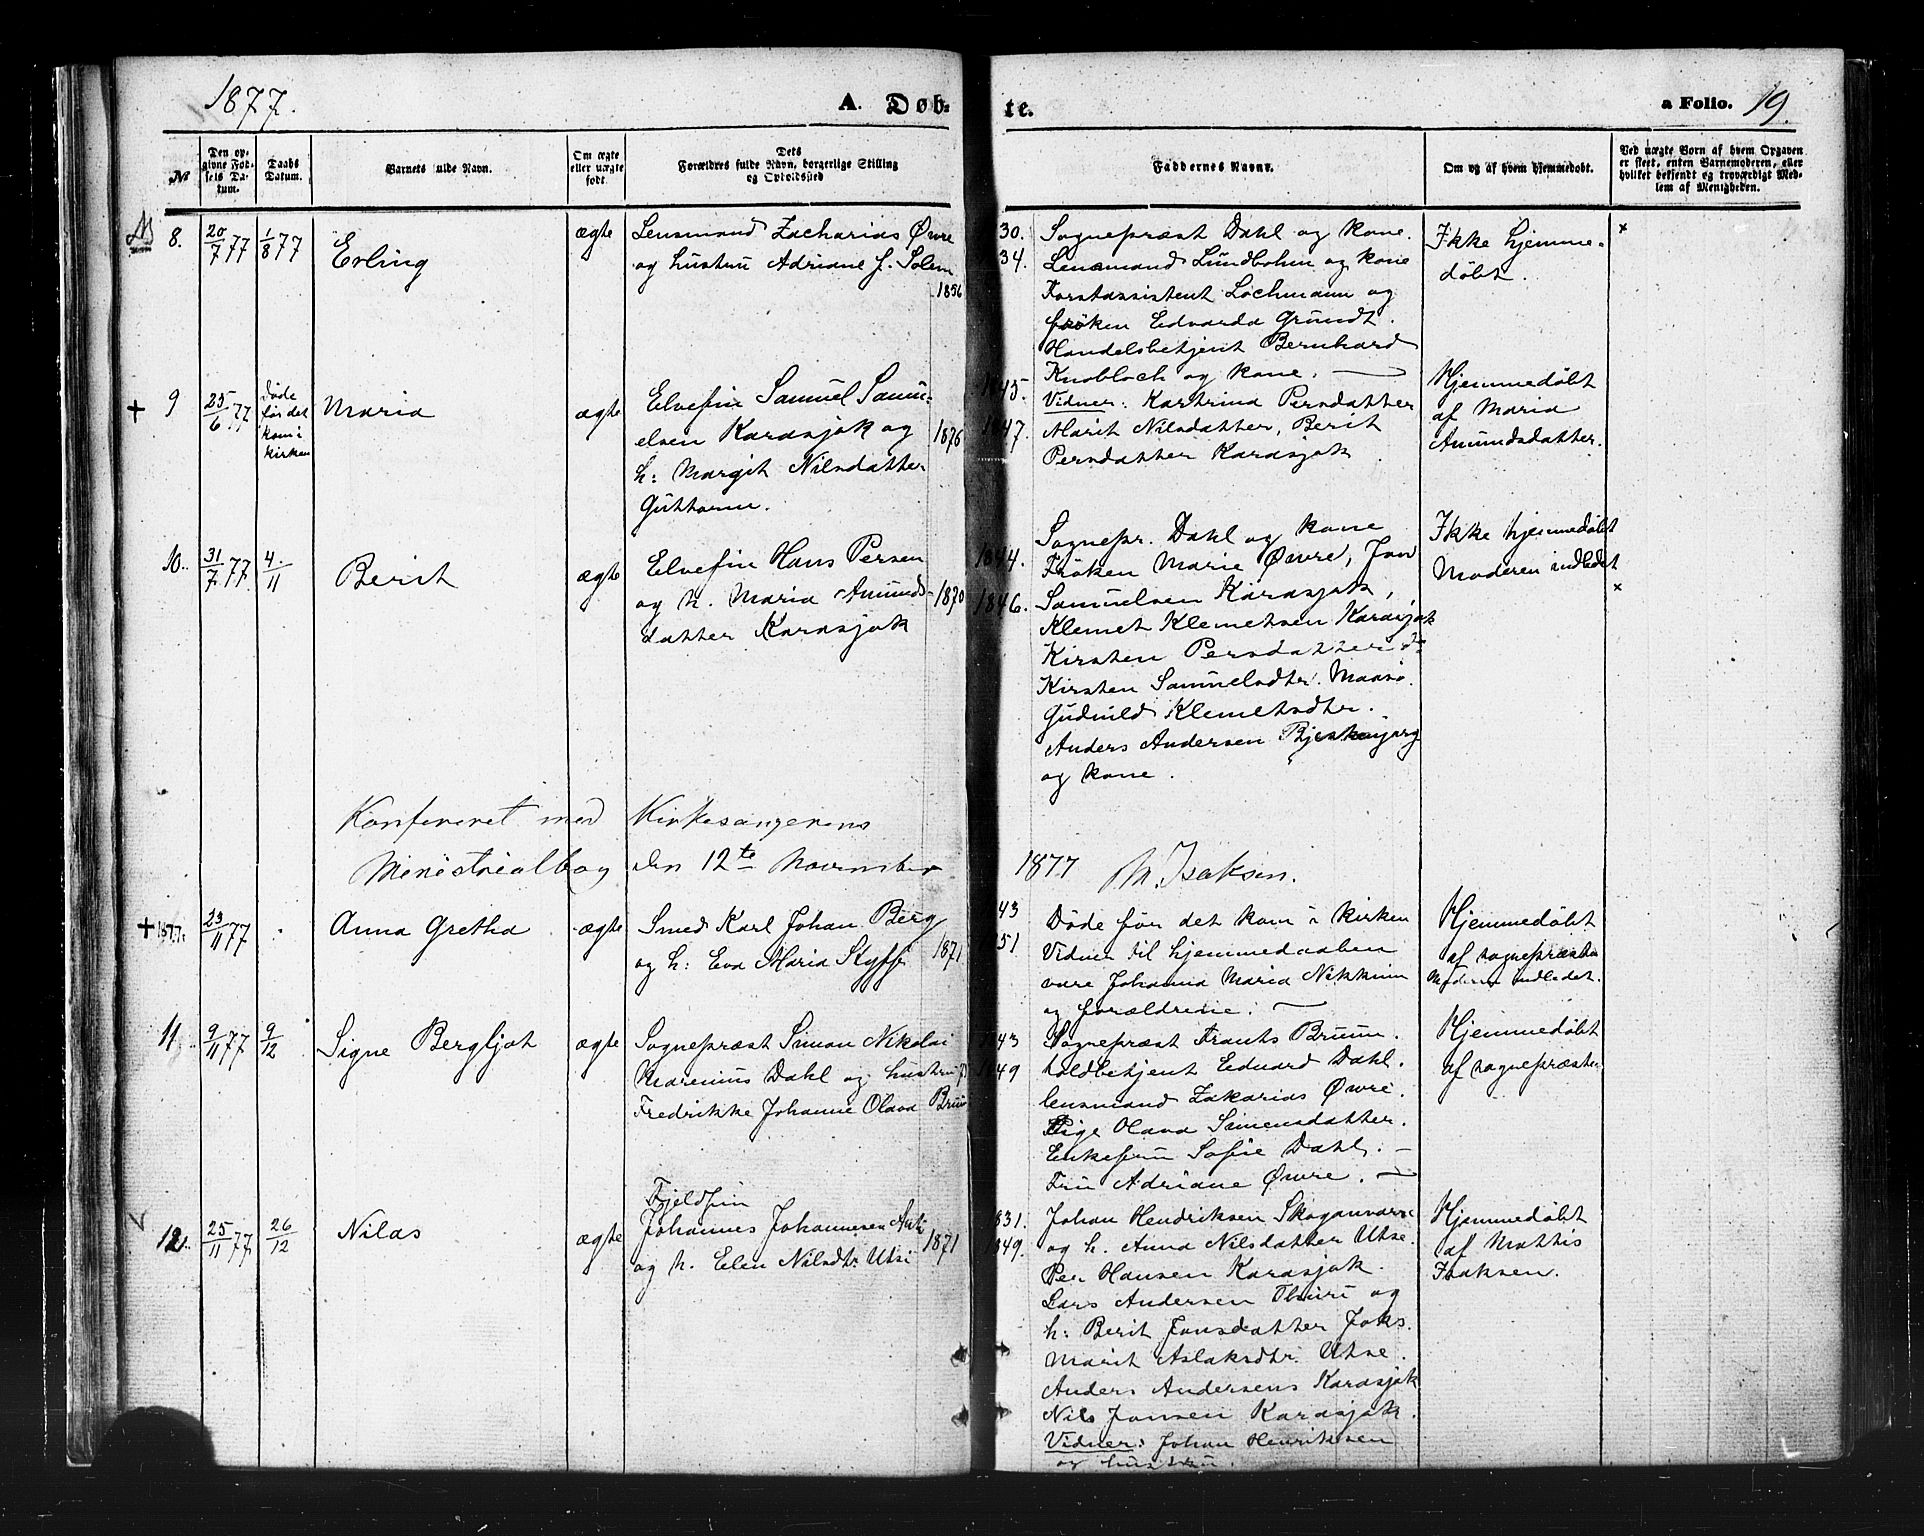 1877.
A. Døb-
te.
a Folio. 19.
№
Den op-
givne Fød-
sels Da-
tum.
Daabs
Datum.
Barnets fulde Navn.
Om ægte
eller uægte
født.
Dets
Forældres fulde Navn, borgerlige Stilling
og Opholdssted
Faddernes Navne.
Om og af hvem hjemmedøbt.
Ved uægte Born af hvem Opgaven
er skeet, enten Barnemoderen, eller
hvilket bekjendt og troværdigt Med-
lem af Menigheden.
8. 20/7 77 1/8 77 Erling ægte
Lensmand Zacharias Øvre
og hustru Adriane f. Solem
1856
30.
34.
Sognepræst Dahl og kone.
Lensmand Lundbohm og kone
Forstassistent Lochmann og
frøken Edvarda Grundt.
Handelsbetjent Bernhard
Knobloch og kone.
Ikke hjemme-
døbt.
+ 9 25/6 77
Døde
før det
kom i
kirken
Maria ægte
Elvefin Samuel Samu-
elsen Karasjok og
h: Margit Nilsdatter
Guttorm.
1876
1845.
1847.
Vidner: Kartrina Persdatter
Marit Nilsdatter, Berit
Persdatter Karasjok
Hjemmedøbt
af Maria
Amundsdatter.
10. 31/7 77 4/11 Berit ægte
Elvefin Hans Persen
og h. Maria Amunds-
datter Karasjok
1870
1844.
1846.
Sognepr. Dahl og kone
Frøken Marie Øvre, Jon
Samuelsen Karasjok,
Klemet Klemetsen Karasjok
Kirsten Persdatter do
Kirsten Samuelsdtr. Maasø.
Gudnild Klemetsdtr.
Anders Andersen
og kone.
Ikke hjemmedøbt
Moderen indledet
Konfereret med Kirkesangerens
Ministrialbog den 12te November
1877 M. Isaksen.
+ 1877. 23/11 77 Anna Gretha ægte
Smed Karl Johan Berg
og h: Eva Maria Styff.
1871
43
51
Døde før det kom i kirken
Vidner til hjemmedaaben
vare Johanna Maria Nikkinen
og forældrene.
Hjemmedøbt
af sognepræsten
Moderen indledet.
11. 9/11 77 9/12 Signe Bergljot ægte
Sognepræst Simon Nikolai
Marenius Dahl og hustru f.
Fredrikke Johanne Olava Bruun
1843
1849
Sognepræst Frants Bruun.
toldbetjent Edvard Dahl.
lensmand Zakarias Øvre.
Pige Olava Simensdatter.
Enkefru Sofie Dahl.
Fru Adriane Øvre.
Hjemmedøbt
af sognepræsten
12. 25/11 77 26/12 Nilas ægte
Fjeldfin
Johannes Johannesen Anti
og h. Elen Nilsdtr Utsi
1871
1831.
1849.
Johan Hendriksen Skoganvarre
og h. Anna Nilsdatter Utse.
Per Hansen Karasjok.
Lars Andersen Thuri og
h: Berit Jonsdatter Joks.
Marit Aslaksdtr. Utse.
Anders Andersens Karasjok
Nils Jonsen Karasjok.
Vidner: Johan Henriksen
og hustru.
Hjemmedøbt
af Mattis
Isaksen.